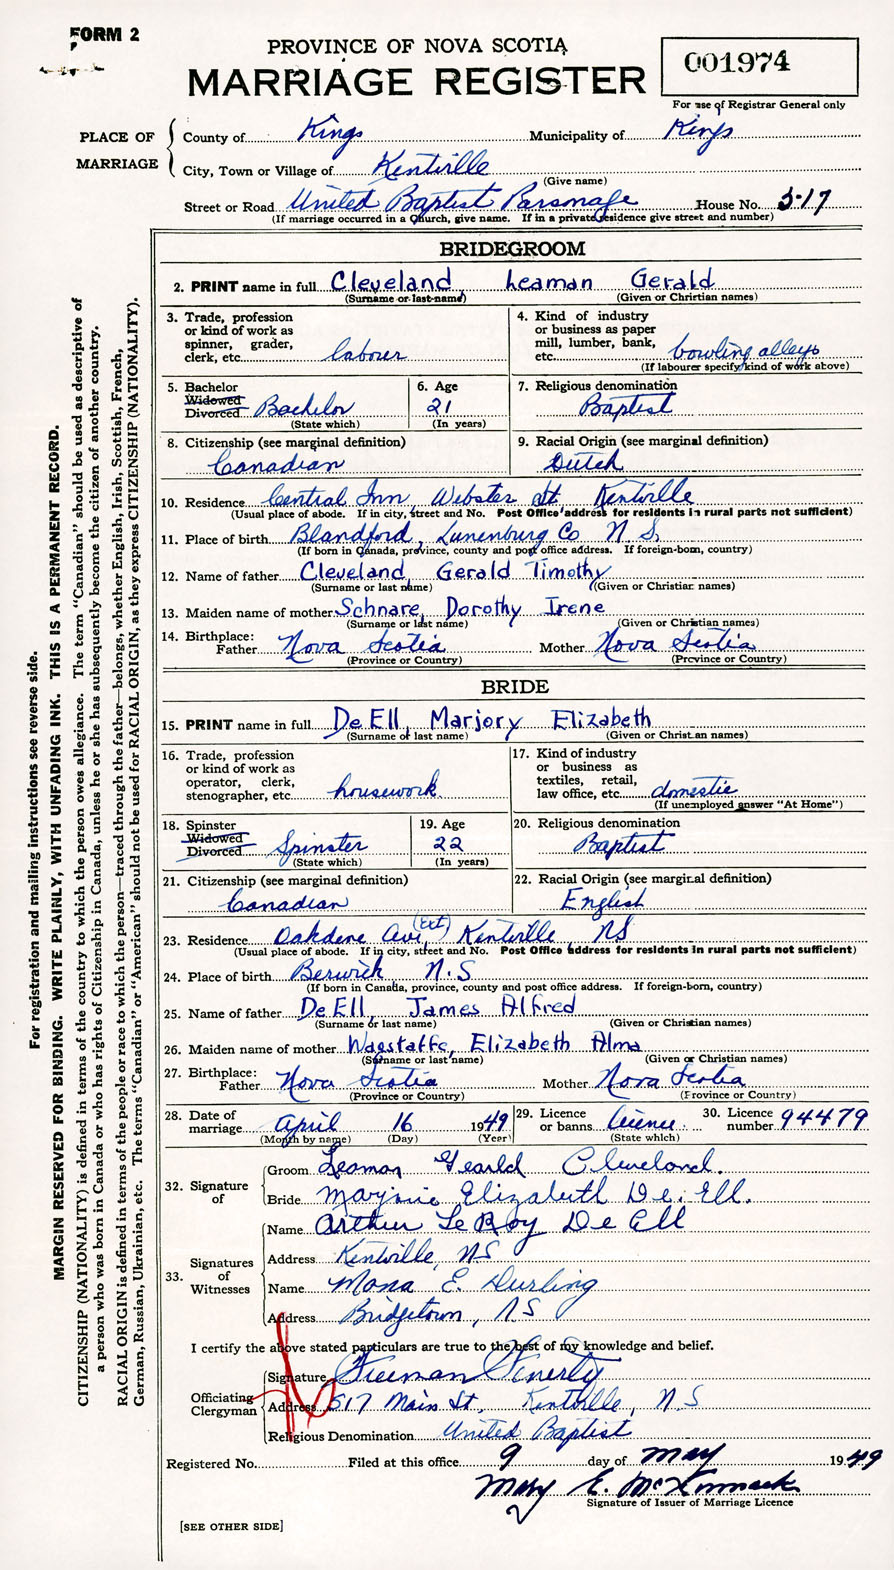 FORM 2
PROVINCE OF NOVA SCOTIA
MARRIAGE REGISTER
001974
For use of Registrar General only
PLACE OF MARRIAGE
County of Kings Municipality of Kings
City, Town or Village of Kentville
(Give name)
Street or Road United Baptist Parsonage House No. 517
(If marriage occurred in a Church, give name. If in a private residence give street and number)
BRIDEGROOM
2. PRINT name in full Cleveland, Leaman Gerald
(Surname or last name) (Given or Christian names)
3. Trade, profession or kind of work as spinner, grader, clerk, etc. labour
4. Kind of industry or business as paper mill, lumber, bank, etc. bowling alleys
(If labourer specify kind of work above)
5. Bachelor Widowed Divorced Bachelor
(State which)
6. Age 21
(In years)
7. Religious denomination Baptist
8. Citizenship (see marginal definition) Canadian
9. Racial Origin (see marginal definition) Dutch
10. Residence Central Inn, Webster St. Kentville
(Usual place of abode. If in city, street and No. Post Office address for residents in rural parts not sufficient)
11. Place of birth Blandford, Lunenburg Co N S,
(If born in Canada, province, county and post office address. If foreign-born, country)
12. Name of father Cleveland, Gerald Timothy
(Surname or last name) (Given or Christian names)
13. Maiden name of mother Schnare, Dorothy Irene
(Surname or last name) (Given or Christian names)
14. Birthplace: Father Nova Scotia Mother Nova Scotia
(Province or Country) (Province or Country)
BRIDE
15. PRINT name in full De Ell, Marjory Elizabeth
(Surname of last name) (Given or Christian names)
16. Trade, profession or kind of work as operator, clerk, stenographer, etc. housework
17. Kind of industry or business as textiles, retail, law office, etc. domestic
(If unemployed answer "At Home")
18. Spinster Widowed Divorced Spinster
(State which)
19. Age 22
(In years)
20. Religious denomination Baptist
21. Citizenship (see marginal definition) Canadian
22. Racial Origin (see marginal definition) English
23. Residence Oakdene Ave, (Ext) Kentville, NS
(Usual place of abode. If in city, street and No. Post Office address for residents in rural parts not sufficient)
24. Place of birth Berwick, N.S
(If born in Canada, province, county and post office address. If foreign-born, country)
25. Name of father De Ell, James Alfred
(Surname or last name) (Given or Christian names)
26. Maiden name of mother Wagstaffe, Elizabeth Alma
(Surname or last name) (Given or Christian names)
27. Birthplace: Father Nova Scotia Mother Nova Scotia
(Province or Country) (Province or Country)
28. Date of marriage April 16 1949
(Month by name) (Day) (Year)
29. Licence or banns licence
(State which)
30. Licence number 94479
32. Signature of
Groom Leaman Gearld Cleveland.
Bride Marjorie Elizabeth De. Ell.
33. Signatures of Witnesses
Name Arthur LeRoy De Ell
Address Kentville, NS
Name Mona E. Durling
Address Bridgetown, NS
I certify the above stated particulars are true to the best of my knowledge and belief.
Officiating Clergyman
Signature Freeman Fenerty
Address 517 Main St. Kentville, N.S
Religious Denomination United Baptist
Registered No. Filed at this office 9 day of May 1949
Mary E. McKormack
Signature of Issuer of Marriage Licence
[SEE OTHER SIDE]
For registration and mailing instructions see reverse side.
MARGIN RESERVED FOR BINDING. WRITE PLAINLY, WITH UNFADING INK. THIS IS A PERMANENT RECORD.
CITIZENSHIP (NATIONALITY) is defined in terms of the country to which the person owes allegiance. The term "Canadian" should be used as descriptive of
a person who was born in Canada or who has rights of Citizenship in Canada, unless he or she has subsequently become the citizen of another country.
RACIAL ORIGIN is defined in terms of the people or race to which the person—traced through the father—belongs, whether English, Irish, Scottish, French,
German, Russian, Ukrainian, etc. The terms "Canadian" or "American" should not be used for RACIAL ORIGIN, as they express CITIZENSHIP (NATIONALITY).